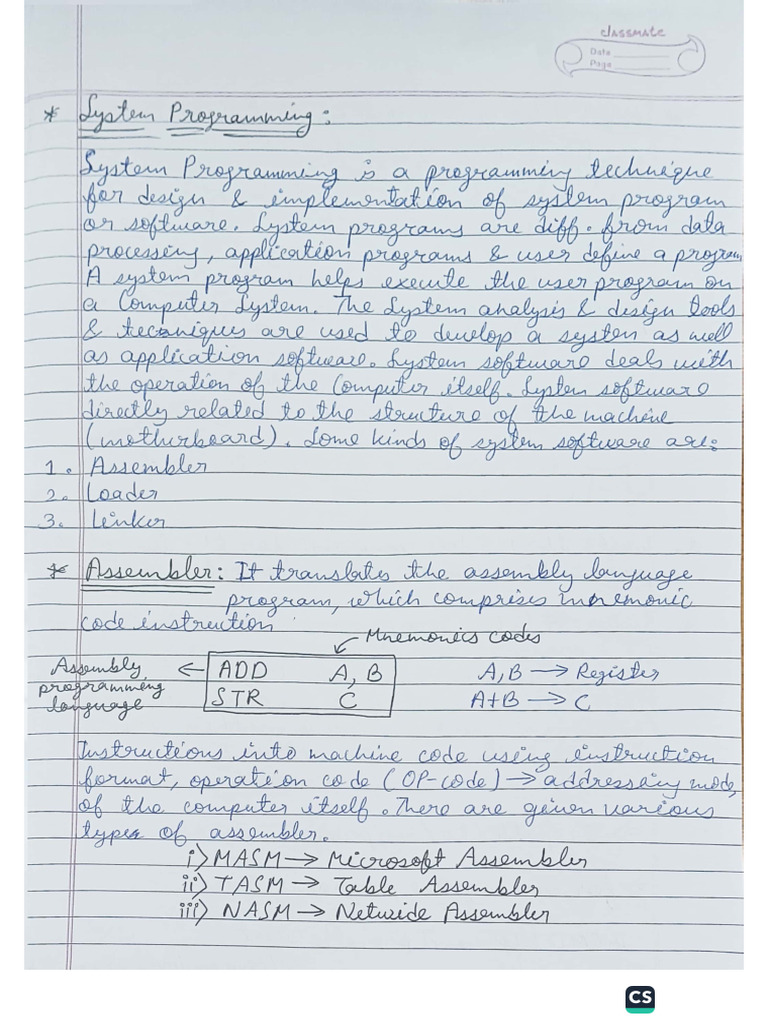 classmate
Date
Page
* System Programming:
System Programming is a programming technique
for design & implementation of system program
or software. System programs are diff. from data
processing, application programs & user define a program
A system program helps execute the user program on
a Computer System. The System analysis & design tools
& techniques are used to develop a system as well
as application software. System software deals with
the operation of the Computer itself. System software
directly related to the structure of the machine
(motherboard). Some kinds of system software are:
1. Assembler
2. Loader
3. Linker
* Assembler: It translates the assembly language
program, which comprises mnemonic
code instruction
Mnemonics codes
Assembly programming language ← ADD A, B A, B → Register
STR C A+B → C
Instructions into machine code using instruction
format, operation code (OP-code) → addressing mode,
of the computer itself. There are given various
types of assembler.
i) MASM → Microsoft Assembler
ii) TASM → Table Assembler
iii) NASM → Netwide Assembler
CS